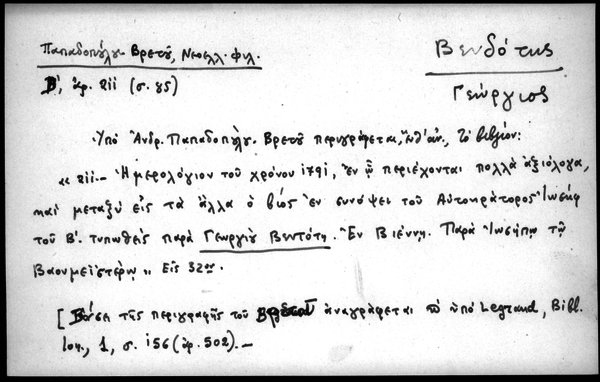 Παπαδοπούλου Βρετοῦ, Νεοελλ. φιλ.
Β', ἀρ. 211 (σ. 85)
Βενδότης
Γεώργιος
Ὑπὸ Ἀνδρ. Παπαδοπούλου Βρετοῦ περιγράφεται, ἔνθ' ἀν., τὸ βιβλίον:
« 211.- Ἡμερολόγιον τοῦ χρόνου 1791, ἐν ᾧ περιέχονται πολλὰ ἀξιόλογα,
καὶ μεταξὺ εἰς τὰ ἄλλα ὁ βίος ἐν συνόψει τοῦ Αὐτοκράτορος Ἰωσὴφ
τοῦ Β'. τυπωθεὶς παρὰ Γεωργίου Βεντότη. Ἐν Βιέννῃ. Παρὰ Ἰωσήπῳ τῷ
Βαουμεϊστέρῳ „ Εἰς 32ον.
[Βάσει τῆς περιγραφῆς τοῦ Βρετοῦ ἀναγράφεται καὶ ὑπὸ Legrand, Bibl.
Ion., 1, σ. 156 (ἀρ. 502).-